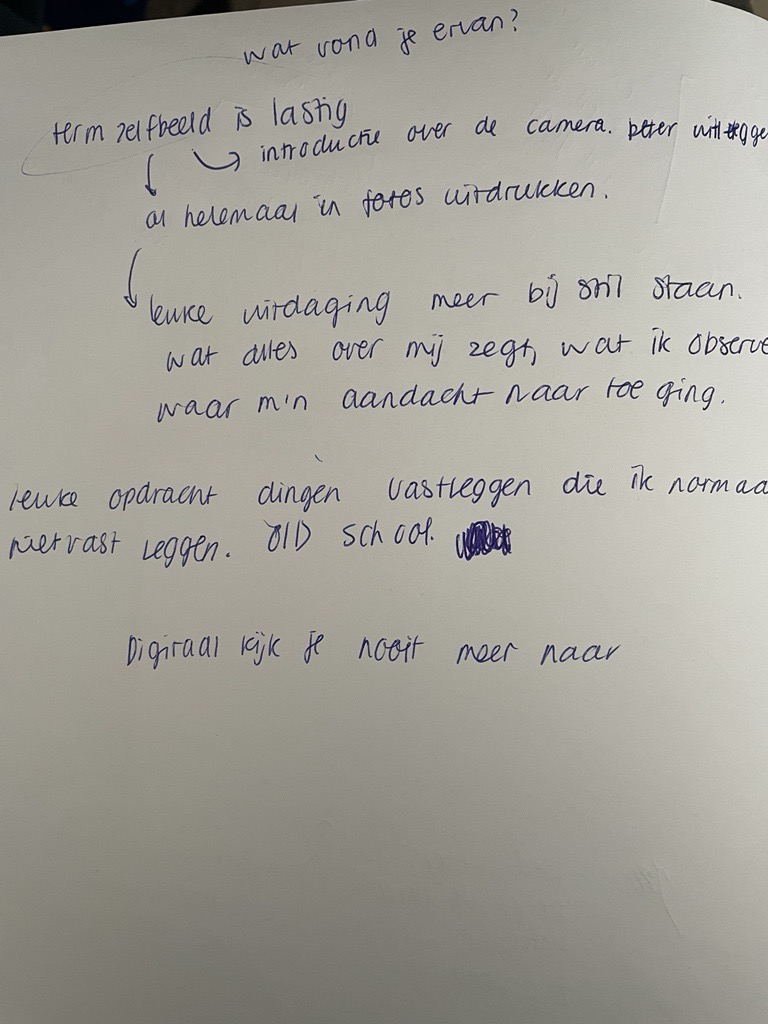 wat vond je ervan?
term zelfbeeld is lastig
introductie over de camera. beter uitlegge
al helemaal in fotos uitdrukken.
leuke uitdaging meer bij stil staan.
wat alles over mij zegt, wat ik observe
waar m'n aandacht naar toe ging.
leuke opdracht dingen vastleggen die ik normaa
niet vast leggen. OlD school.
Digitaal kijk je nooit meer naar